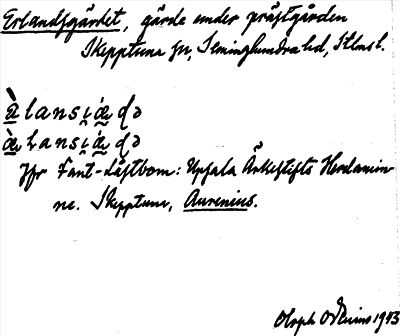 Erlandsgärdet, gärde under prästgården
Skepptuna sn, Seminghundra hd, Sthms l.
àlansịæ̣ḍə
æ̀lansịæ̣ḍə
Jfr Fant-Låstbom: Upsala Ärkestifts Herdamin
ne. Skepptuna, Aurenius.
Oloph Odenius 1943